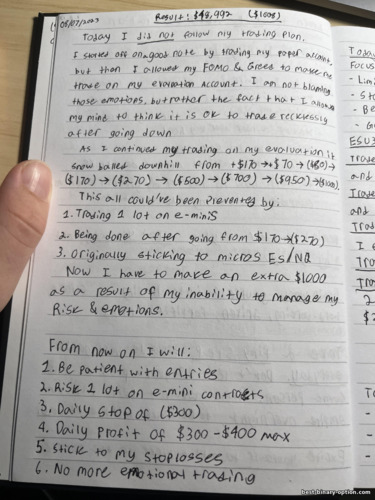 08/07/2023 Result: $49,992 ($1008)
Today I did not follow my trading plan.
I started off on a good note by trading my paper account,
but than I allowed my FOMO & Greed to make me
trade on my evaluation account. I am not blaming
those emotions, but rather the fact that I allowed
my mind to think it is ok to trade recklessly
after going down
As I continued my trading on my evaluation it
snow balled downhill from +$170 → +$70 → ($80) →
($170) → ($270) → ($500) → ($700) → ($950) →
This all could've been prevented by:
1. Trading 1 lot on e-minis
2. Being done after going from $170 → ($270)
3. Originally sticking to micros ES/NQ
Now I have to make an extra $1000
as a result of my inability to manage my
Risk & emotions.
From now on I will:
1. Be patient with entries
2. Risk 1 lot on e-mini contracts
3. Daily stop of ($300)
4. Daily Profit of $300-$400 max
5. Stick to my stoplosses
6. No more emotional trading
Focus
ESU3
Trade
and
Trade
and
Trad
I
best-binary-option.com